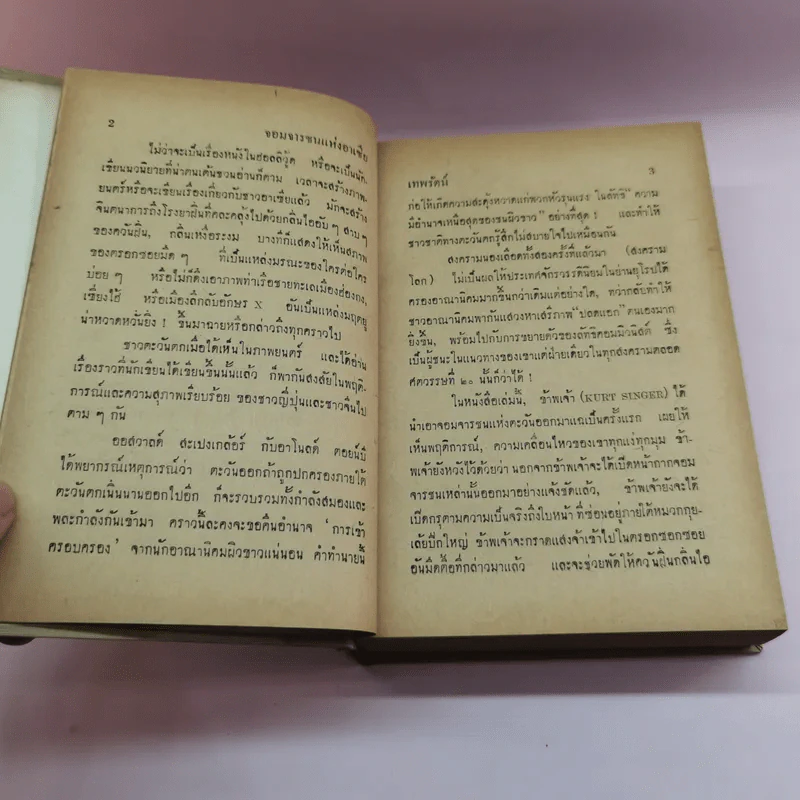 2
จอมจารชนแห่งอาเซีย
ไม่ว่าจะเป็นเรื่องหนังในฮอลลีวู้ด หรือจะเป็นนัก-
เขียนนวนิยายที่น่าตนเต้นชวนอ่านก็ตาม เวลาจะสร้างภาพ-
ยนตร์หรือจะเขียนเรื่องเกี่ยวกับชาวอาเซียแล้ว มักจะสร้าง
จินตนาการถึงโรงยาฝิ่นที่คละคลุ้งไปด้วยกลิ่นไออับ ๆ สาบ ๆ
ของควันฝิ่น, กลิ่นเหงื่อระงม บางทีก็แสดงให้เห็นสภาพ
ของตรอกซอยมืด ๆ ที่เป็นแหล่งมรณะของใครต่อใคร
บ่อย ๆ หรือไม่ก็ดึงเอาภาพท่าเรือชายทะเลเมืองฮ่องกง,
เซี่ยงไฮ้ หรือเมืองลึกลับอักษร X อันเป็นแหล่งมฤตยู
น่าหวาดหวั่นยิ่ง ! ขึ้นมาฉายหรือกล่าวถึงทุกคราวไป
ชาวตะวันตกเมื่อได้เห็นในภาพยนตร์ และได้อ่าน
เรื่องราวที่นักเขียนได้เขียนขึ้นนั้นแล้ว ก็พากันสงสัยในพฤติ-
การณ์และความสุภาพเรียบร้อย ของชาวญี่ปุ่นและชาวจีนไป
ตาม ๆ กัน
ออสวาลด์ สะเปงเกล้อร์ กับอาโนลด์ ตอยน์บี
ได้พยากรณ์เหตุการณ์ว่า ตะวันออกถ้าถูกปกครองภายใต้
ตะวันตกเนิ่นนานออกไปอีก ก็จะรวบรวมทั้งกำลังสมองและ
พละกำลังกันเข้ามา คราวนี้ละคงจะขอคืนอำนาจ ‘การเข้า
ครอบครอง’ จากนักอาณานิคมผิวขาวแน่นอน คำทำนายนี้
เทพรัตน์
3
ก่อให้เกิดความสะดุ้งหวาดแก่พวกหัวรุนแรง ในลัทธิ “ความ
มีอำนาจเหนือสุดของชนผิวขาว” อย่างที่สุด ! และทำให้
ชาวชาติทางตะวันตกรู้สึกไม่สบายใจไปเหมือนกัน
สงครามนองเลือดทั้งสองครั้งที่แล้วมา (สงคราม
โลก) ไม่เป็นผลให้ประเทศจักรวรรดินิยมในย่านยุโรปได้
ครองอาณานิคมมากขึ้นกว่าเดิมแต่อย่างใด, ทว่ากลับทำให้
ชาวอาณานิคมพากันแสวงหาเสรีภาพ “ปลดแอก” ตนเองมาก
ยิ่งขึ้น, พร้อมไปกับการขยายตัวของลัทธิคอมมิวนิสต์ ซึ่ง
เป็นผู้ชนะในแนวทางของเขาแต่ฝ่ายเดียวในทุกสงครามตลอด
ศตวรรษที่ ๒๐ นั้นก็ว่าได้ !
ในหนังสือเล่มนี้, ข้าพเจ้า (KURT SINGER) ได้
นำเอาจอมจารชนแห่งตะวันออกมาแฉเป็นครั้งแรก เผยให้
เห็นพฤติการณ์, ความเคลื่อนไหวของเขาทุกแง่ทุกมุม ข้า-
พเจ้ายังหวังไว้ด้วยว่า นอกจากข้าพเจ้าจะได้เปิดหน้ากากจอม
จารชนเหล่านี้ออกมาอย่างแจ้งชัดแล้ว, ข้าพเจ้ายังจะได้
เปิดกรุตามความเป็นจริงถึงใบหน้า ที่ซ่อนอยู่ภายใต้หมวกกุย-
เล้ยปีกใหญ่ ข้าพเจ้าจะกราดแสงจ้าเข้าไปในตรอกซอกซอย
อันมืดตื้อที่กล่าวมาแล้ว และจะช่วยพัดให้ควันฝิ่นกลิ่นไอ